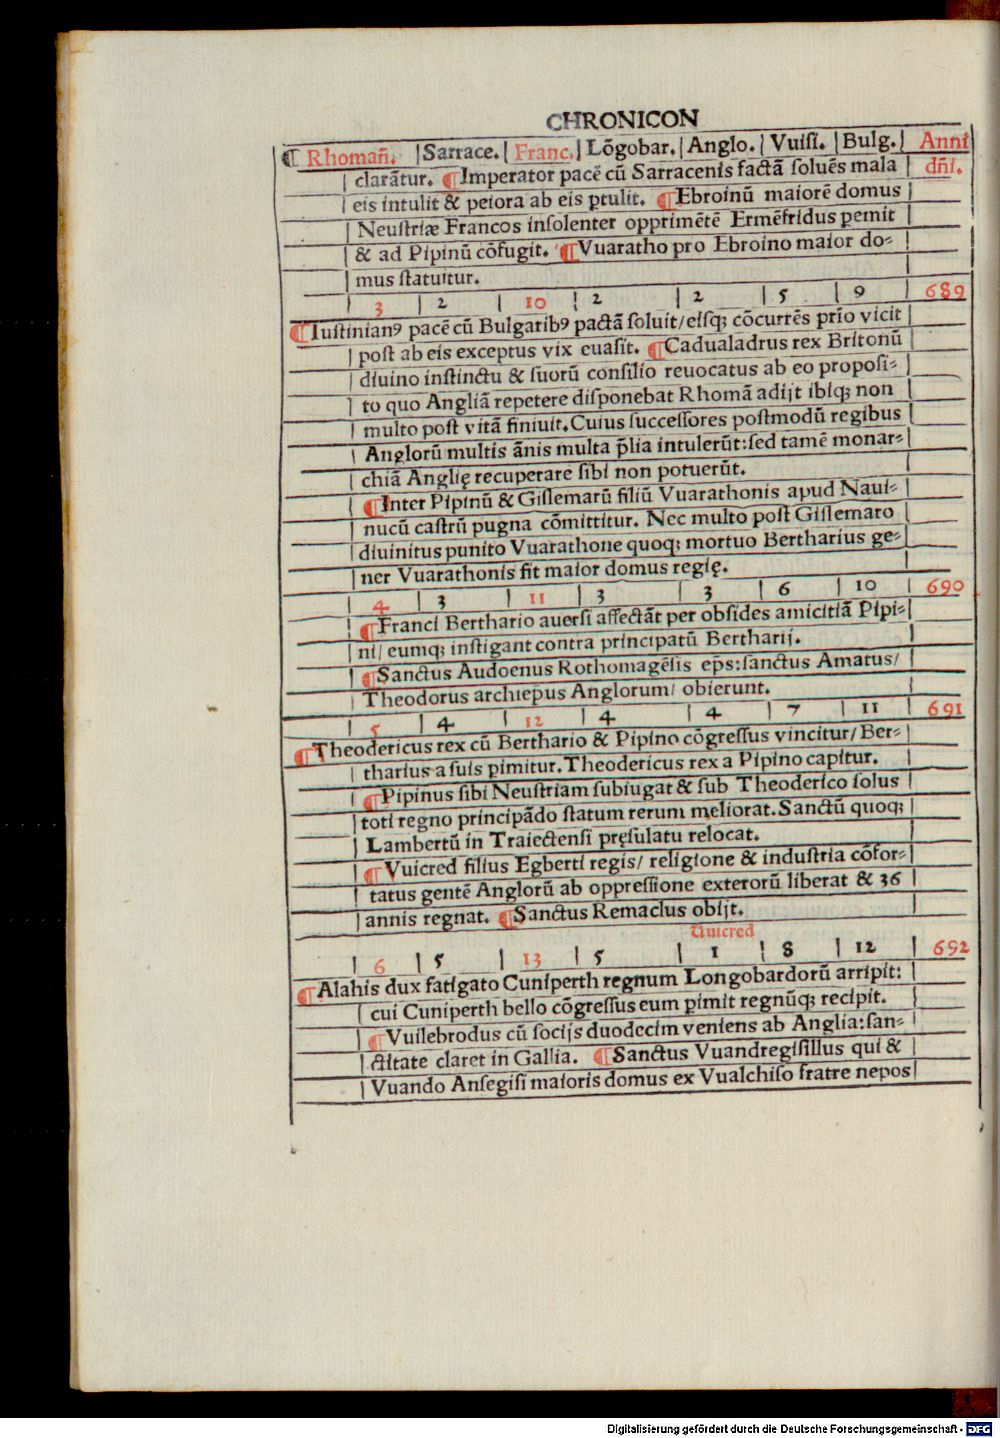 CHRONICON
¶ Rhomañ. |Sarrace.| Franc.| Lõgobar.| Anglo.| Vuisi. | Bulg.| Anni
clarãtur. ¶Imperator pacẽ cũ Sarracenis factã soluẽs mala dñi.
eis intulit & peiora ab eis ptulit. ¶Ebroinũ maiorẽ domus
Neustriæ Francos insolenter opprimẽtẽ Ermẽfridus pemit
& ad Pipinũ cõfugit. ¶Vuaratho pro Ebroino maior do⸗
mus statuitur.
| 3 | 2 | 10 | 2 | 2 | 5 | 9 | 689
¶Iustinianꝰ pacẽ cũ Bulgaribꝰ pactã soluit/eisq; cõcurrẽs prio vicit
post ab eis exceptus vix euasit. ¶Cadualadrus rex Britonũ
diuino instinctu & suorũ consilio reuocatus ab eo proposi⸗
to quo Angliã repetere disponebat Rhomã adijt ibiq; non
multo post vitã finiuit. Cuius successores postmodũ regibus
Anglorũ multis ãnis multa p̃lia intulerũt: sed tamẽ monar⸗
chiã Anglię recuperare sibi non potuerũt.
¶Inter Pipinũ & Gislemarũ filiũ Vuarathonis apud Naui⸗
nucũ castrũ pugna cõmittitur. Nec multo post Gislemaro
diuinitus punito Vuarathone quoq; mortuo Bertharius ge⸗
ner Vuarathonis fit maior domus regię.
| 4 | 3 | 11 | 3 | 3 | 6 | 10 | 690
¶Franci Berthario auersi affectãt per obsides amicitiã Pipi⸗
ni/ eumq; instigant contra principatũ Bertharij.
¶Sanctus Audoenus Rothomagẽsis ep̃s: sanctus Amatus/
Theodorus archiep̃us Anglorum/ obierunt.
| 5 | 4 | 12 | 4 | 4 | 7 | 11 | 691
¶Theodericus rex cũ Berthario & Pipino cõgressus vincitur/ Ber⸗
tharius a suis pimitur. Theodericus rex a Pipino capitur.
¶Pipinus sibi Neustriam subiugat & sub Theoderico solus
toti regno principãdo statum rerum meliorat. Sanctũ quoq;
Lambertũ in Traiectensi pręsulatu relocat.
¶Vuicred filius Egberti regis/ religione & industria cõfor⸗
tatus gentẽ Anglorũ ab oppressione exterorũ liberat & 36
annis regnat. ¶Sanctus Remaclus obijt.
Vuicred
| 6 | 5 | 13 | 5 | 1 | 8 | 12 | 692
¶Alahis dux fatigato Cuniperth regnum Longobardorũ arripit:
cui Cuniperth bello cõgressus eum pimit regnũq; recipit.
¶Vuilebrodus cũ socijs duodecim veniens ab Anglia: san⸗
ctitate claret in Gallia. ¶Sanctus Vuandregisillus qui &
Vuando Ansegisi maioris domus ex Vualchiso fratre nepos
Digitalisierung gefördert durch die Deutsche Forschungsgemeinschaft - DFG